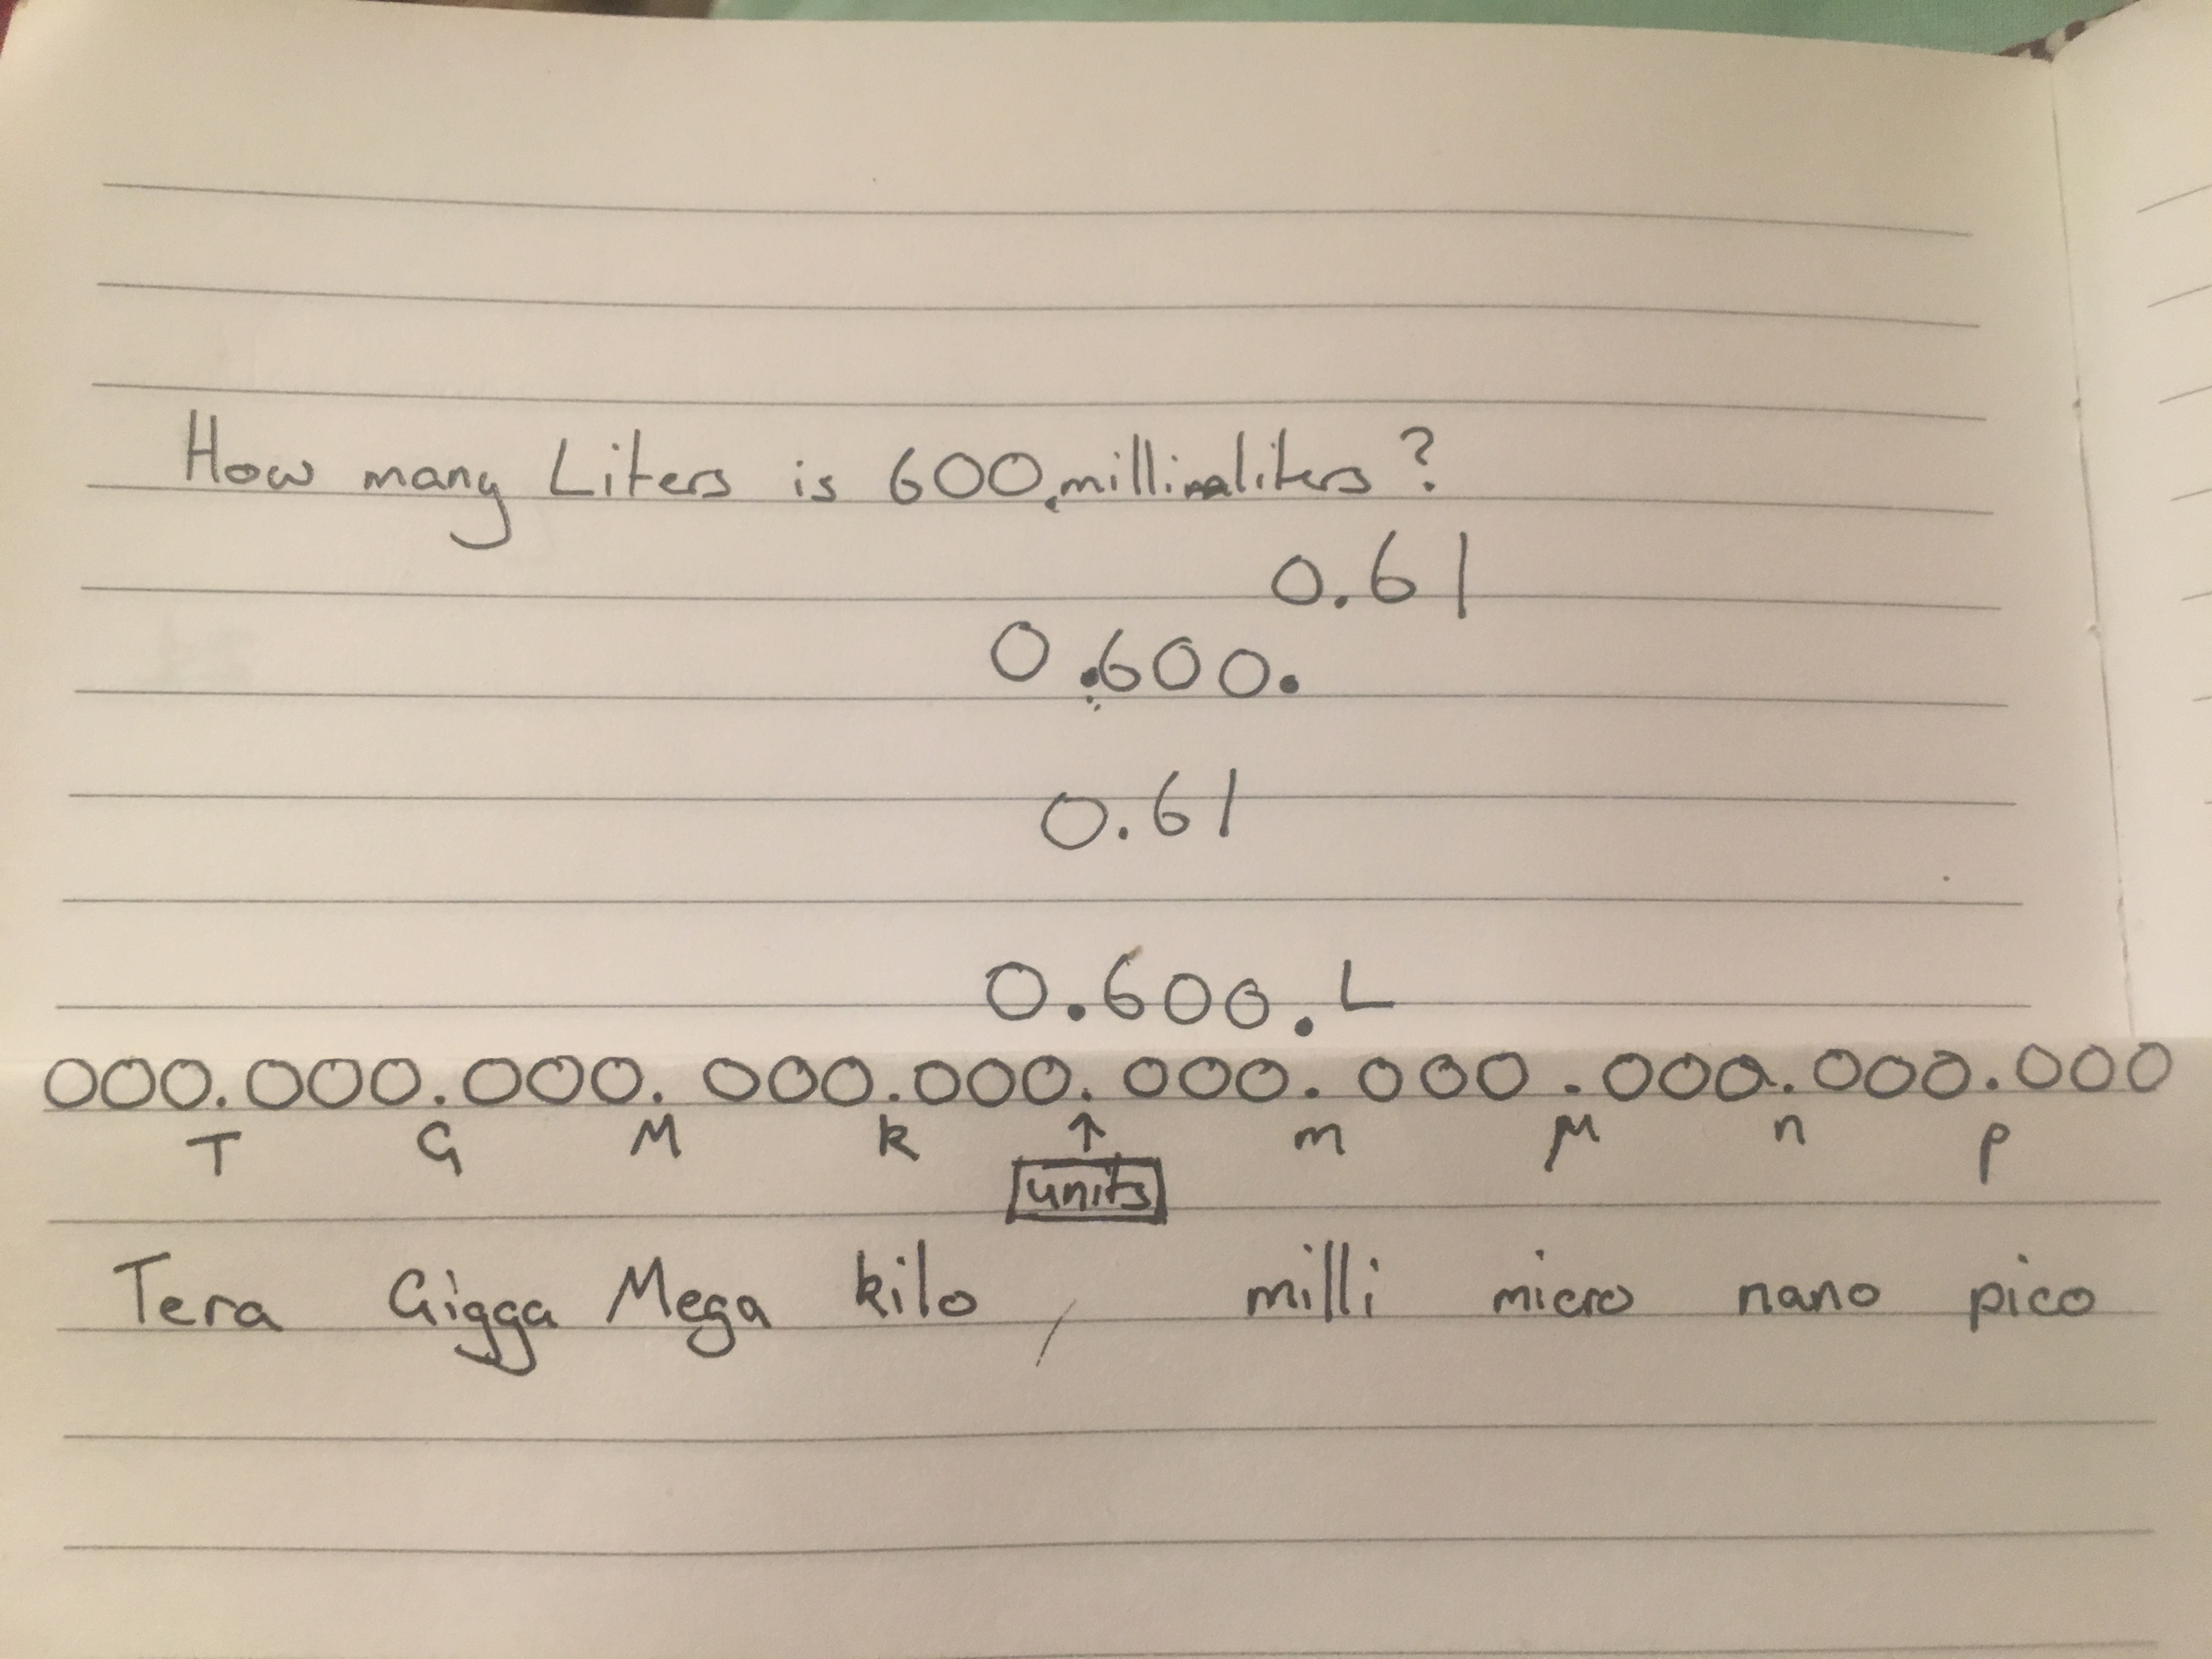 How many Liters is 600.millimaliters?
0.6l
0.600.
0.6l
0.600.L
000.000.000.000.000.000.000.000.000.000
T G M k ↑ m μ n p
units
Tera Gigga Mega kilo , milli micro nano pico